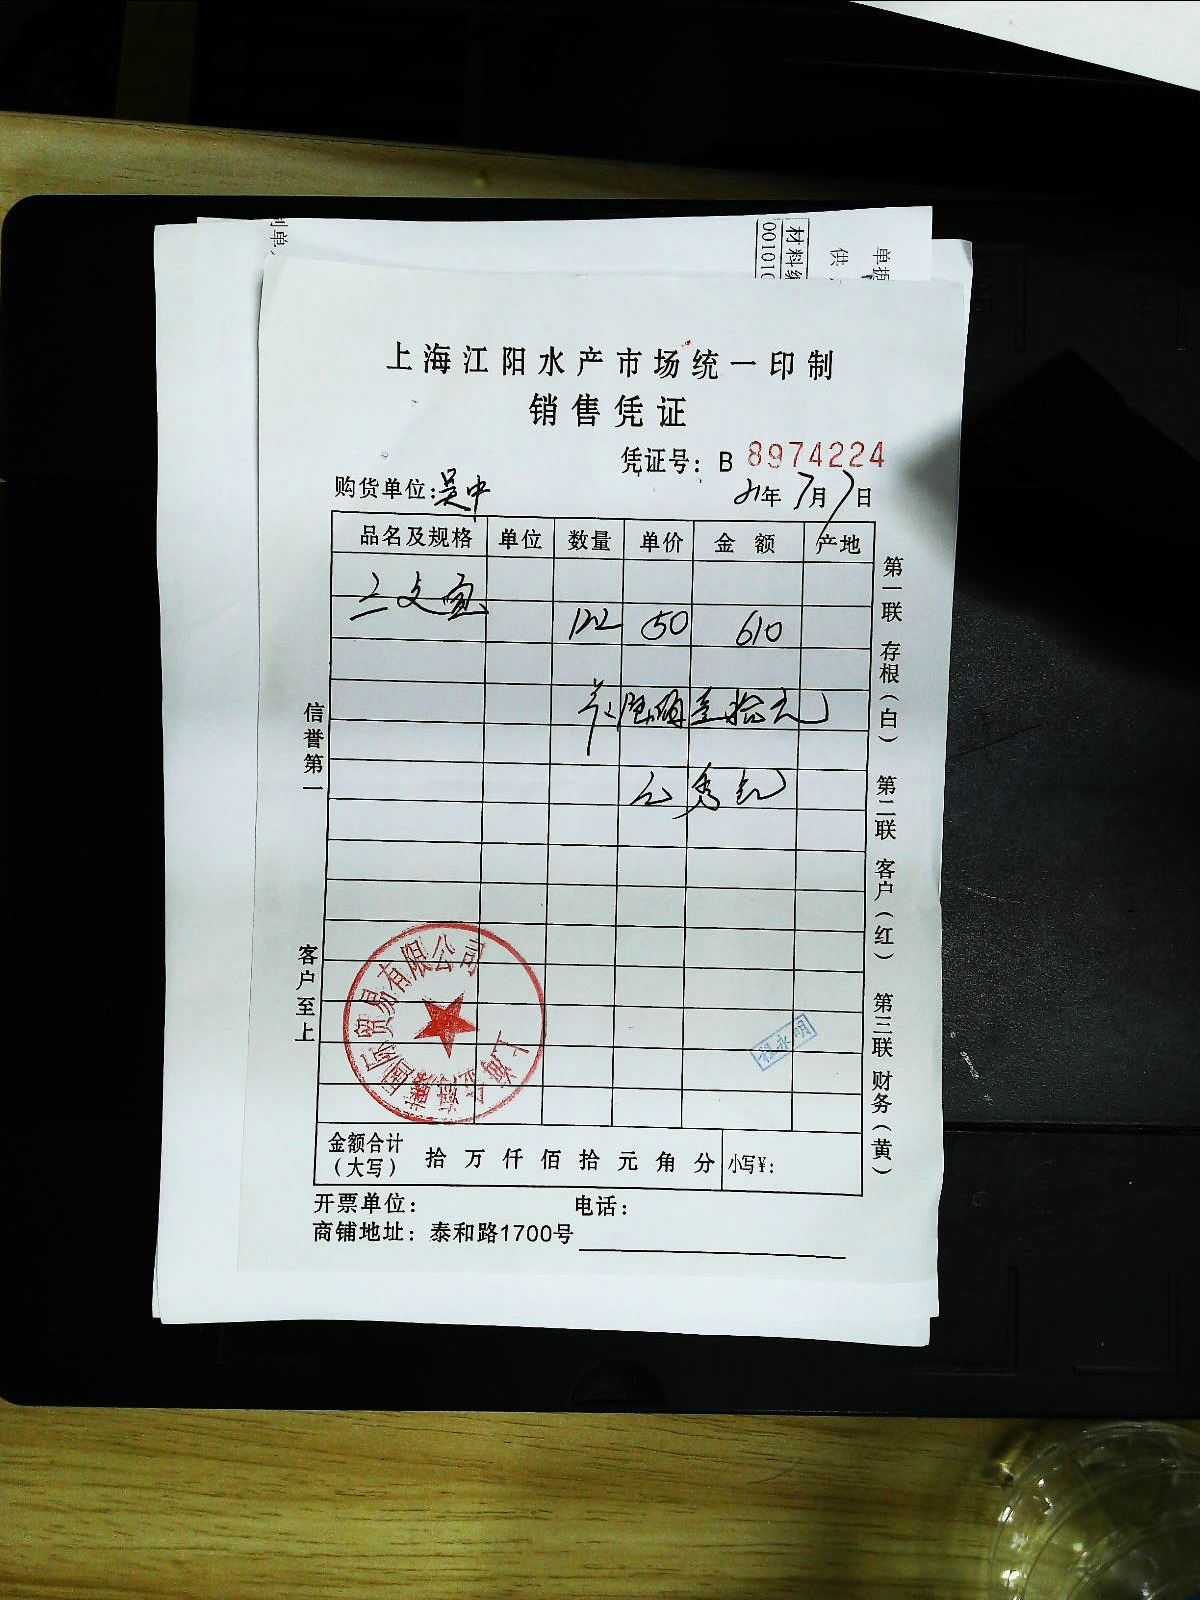 利单
材料编
001010
供
单据
上海江阳水产市场统一印制
销售凭证
凭证号：B 8974224
购货单位：吴中
21年7月7日
品名及规格 单位 数量 单价 金额 产地
三文鱼 122 50 610
共陆佰壹拾元
信誉第一
客户至上
第一联 存根（白） 第二联 客户（红） 第三联 财务（黄）
上海 国际贸易有限公司
程永明
金额合计（大写） 拾 万 仟 佰 拾 元 角 分 小写¥：
开票单位： 电话：
商铺地址：泰和路1700号